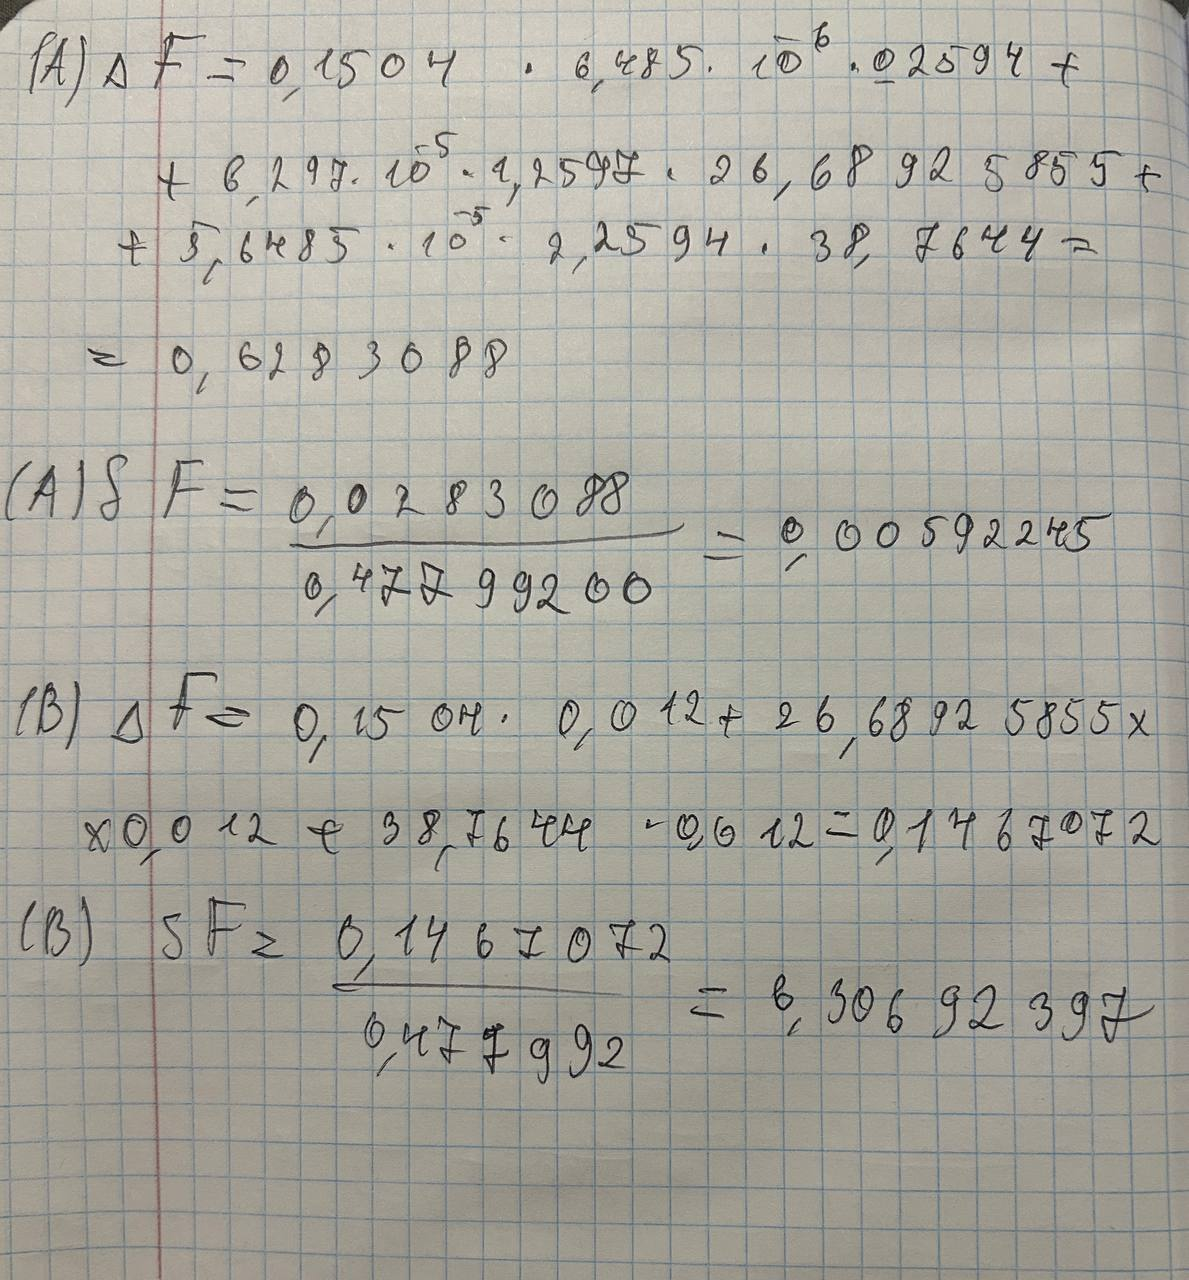 (A) Δ F = 0,1504 · 6,485 · 10^-6 · 02594 +
+ 6,297 · 10^-5 · 1,2597 · 26,68925855 +
+ 5,6485 · 10^-5 · 2,2594 · 38,7644 =
= 0,6283088
(A) δ F = 0,0283088 / 0,47799200 = 0,00592245
(B) Δ F = 0,1504 · 0,012 + 26,68925855 ×
× 0,012 + 38,7644 · 0,012 = 0,1467072
(B) δ F = 0,1467072 / 0,477992 = 0,30692397